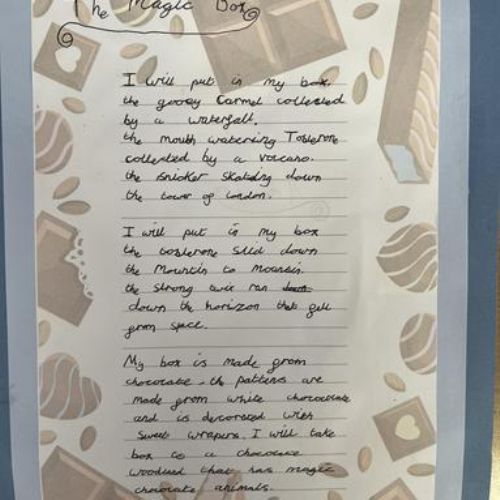 The Magic Box
I will put in my box.
the gooey Carmel collected
by a waterfall.
the mouth watering Toblerone
collected by a volcano.
the snicker skating down
the tower of London.
I will put in my box
the toblerone slid down
the Mountin to mountin.
the strong twix ran
down the horizon that fell
from space.
My box is made from
chocolate, the patterns are
made from white chocolate
and is decorated with
sweet wrapers. I will take
box to a chocolate
woodland that has magic
chocolate animals.